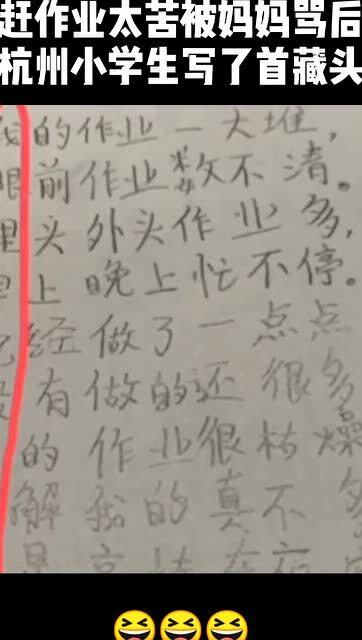 赶作业太苦被妈妈骂后
杭州小学生写了首藏头
我的作业一大堆，
眼前作业数不清。
里头外头作业多，
上晚上忙不停。
已经做了一点点
没有做的还很多
的作业很枯燥
解我的真不